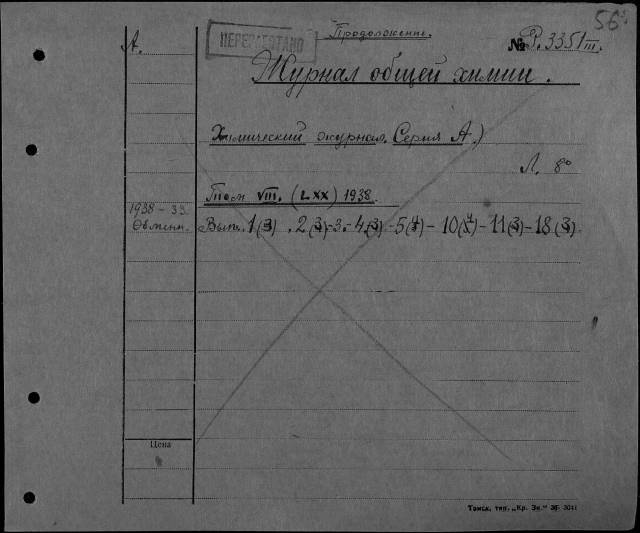 56
Продолжение.
А.
ПЕРЕПЕЧАТАНО
№ Р. 3351 III.
Журнал общей химии.
Химический журнал. Серия А.)
Л. 8°
Том VIII. (LXX) 1938.
1938 - 33.
Обменн. Вып. 1(3). 2(3)-3.-4(3)-5(4)-10(5/4)-11(3)-18(3)
Цена
Томск, тип. „Кр. Зн." 36 3041